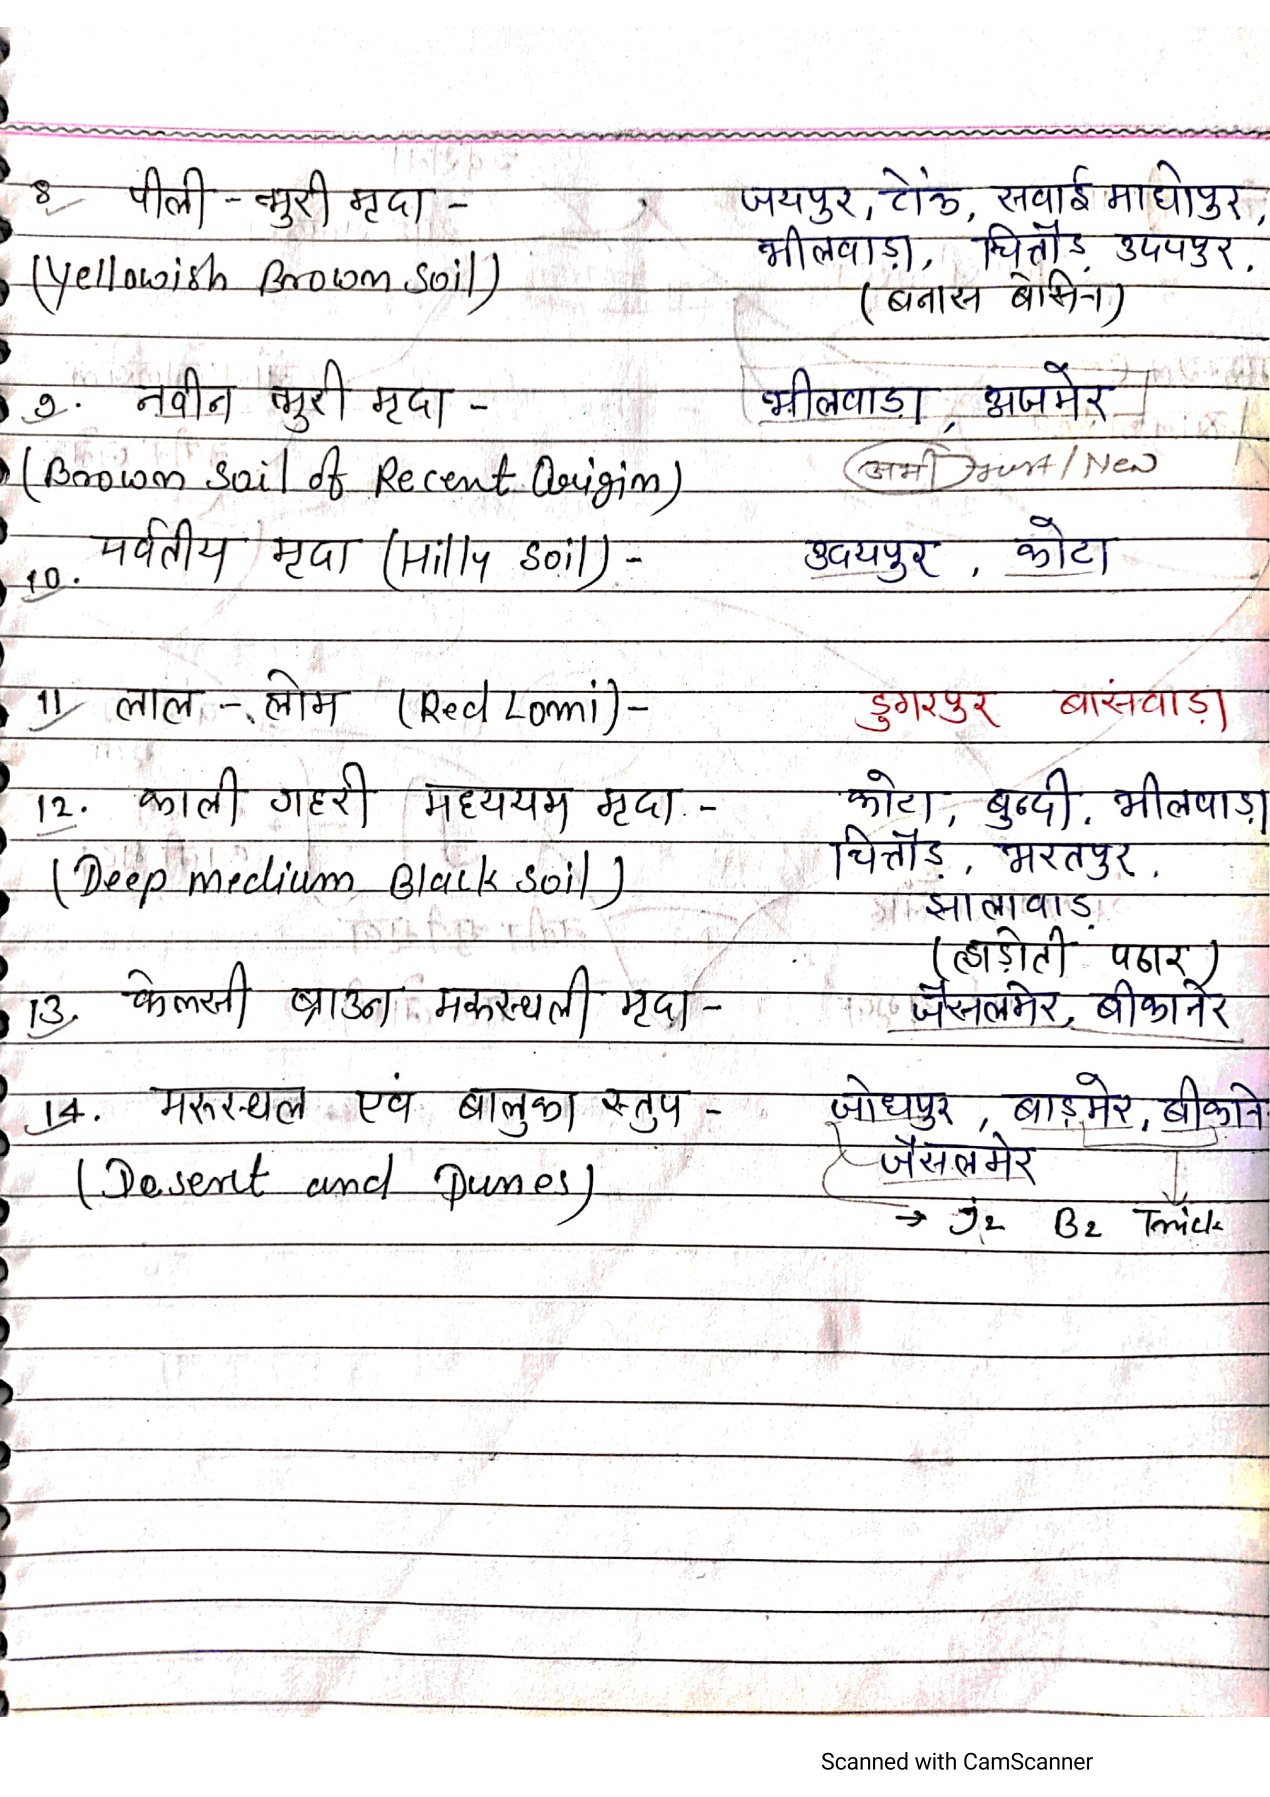 8 पीली - भुरी मृदा - जयपुर, टोंक, सवाई माधोपुर,
भीलवाड़ा, चित्तौड़ उदयपुर.
(Yellowish Brown Soil)
(बनास बेसिन)
9. नवीन भुरी मृदा - भीलवाड़ा, अजमेर
(Brown Soil of Recent Origin) अभी /New
10. पर्वतीय मृदा (Hilly Soil) - उदयपुर, कोटा
11 लाल - लोम (Red Lomi) - डुगरपुर बांसवाड़ा
12. काली गहरी मध्ययम मृदा - कोटा, बुन्दी, भीलवाड़ा
चित्तौड़, भरतपुर.
(Deep medium Black Soil)
झालावाड़
(हाड़ोती पठार)
13. केलसी ब्राउन मरुस्थली मृदा - जैसलमेर, बीकानेर
14. मरुस्थल एवं बालुका स्तुप - जोधपुर, बाड़मेर, बीकाने
जैसलमेर
(Desert and Dunes)
→ J2 B2 Trick
Scanned with CamScanner